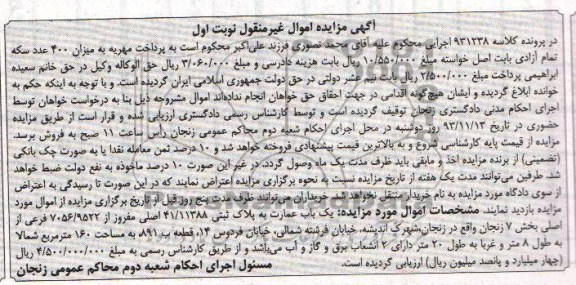 آگهی مزایده اموال غیرمنقول نوبت اول
در پرونده کلاسه ۹۳۱۲۳۸ اجرایی محکوم علیه آقای محمد تصوری فرزند علی‌اکبر محکوم است به پرداخت مهریه به میزان ۴۰۰ عدد سکه
تمام آزادی بابت اصل خواسته مبلغ ۱۰/۵۵۰/۰۰۰ ریال بابت هزینه دادرسی و مبلغ ۳/۰۶۰/۰۰۰ ریال حق الوکاله وکیل در حق خانم سعیده
ابراهیمی پرداخت مبلغ ۲/۵۰۰/۰۰۰ ریال بابت نیم عشر دولتی در حق دولت جمهوری اسلامی ایران گردیده است. و با توجه به اینکه حکم به
خوانده ابلاغ گردیده و ایشان هیچ‌گونه اقدامی در جهت احقاق حق خواهان انجام نداده‌اند اموال مشروحه ذیل بنا به درخواست خواهان توسط
اجرای احکام مدنی دادگستری زنجان توقیف گردیده است و توسط کارشناس رسمی دادگستری ارزیابی شده و قرار است از طریق مزایده
حضوری در تاریخ ۹۳/۱۱/۱۳ روز دوشنبه در محل اجرای احکام شعبه دوم محاکم عمومی زنجان رأس ساعت ۱۱ صبح به فروش برسد.
مزایده از قیمت پایه کارشناسی شروع و به بالاترین قیمت پیشنهادی فروخته خواهد شد و ۱۰ درصد ثمن معامله نقدا یا به صورت چک بانکی
(تضمینی) از برنده مزایده اخذ و مابقی باید ظرف مدت یک ماه وصول گردد، در غیر این صورت ۱۰ درصد ماخوذه به نفع دولت ضبط خواهد
شد. طرفین می‌توانند مدت یک هفته از تاریخ مزایده نسبت به نحوه برگزاری مزایده اعتراض نمایند که در این صورت تا رسیدگی به اعتراض
از سوی دادگاه مورد مزایده به نام خریدار منتقل نخواهد شد. خریداران می‌توانند ظرف مدت پنج روز قبل از تاریخ برگزاری مزایده از اموال مورد
مزایده بازدید نمایند. مشخصات اموال مورد مزایده: یک باب عمارت به پلاک ثبتی ۴۱/۱۱۳۸۸ اصلی مفروز از ۷۰۵۶/۹۵۲۲ فرعی از
اصلی بخش ۷ زنجان واقع در زنجان، شهرک اندیشه، خیابان فرشته شمالی، خیابان فردوس ۱۴، قطعه ب ۸۹۱ به مساحت ۱۶۰ مترمربع شمالا
به طول ۸ متر و غربا به طول ۲۰ متر دارای ۲ انشعاب برق و گاز و آب می‌باشد و از طریق کارشناس رسمی به مبلغ ۴/۵۰۰/۰۰۰/۰۰۰ ریال
(چهار میلیارد و پانصد میلیون ریال) ارزیابی گردیده است. مسئول اجرای احکام شعبه دوم محاکم عمومی زنجان